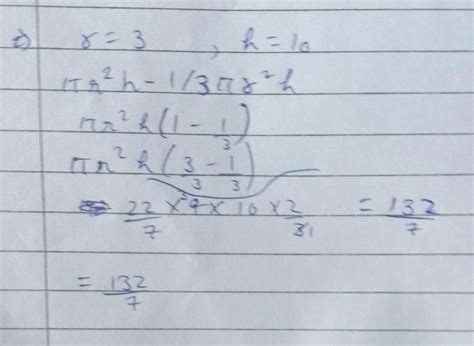 r = 3 , h = 10
πr²h - 1/3πr²h
πr²h(1 - 1/3)
πr²h(3/3 - 1/3)
22/7 × × 10 × 2/ = 132/7
= 132/7